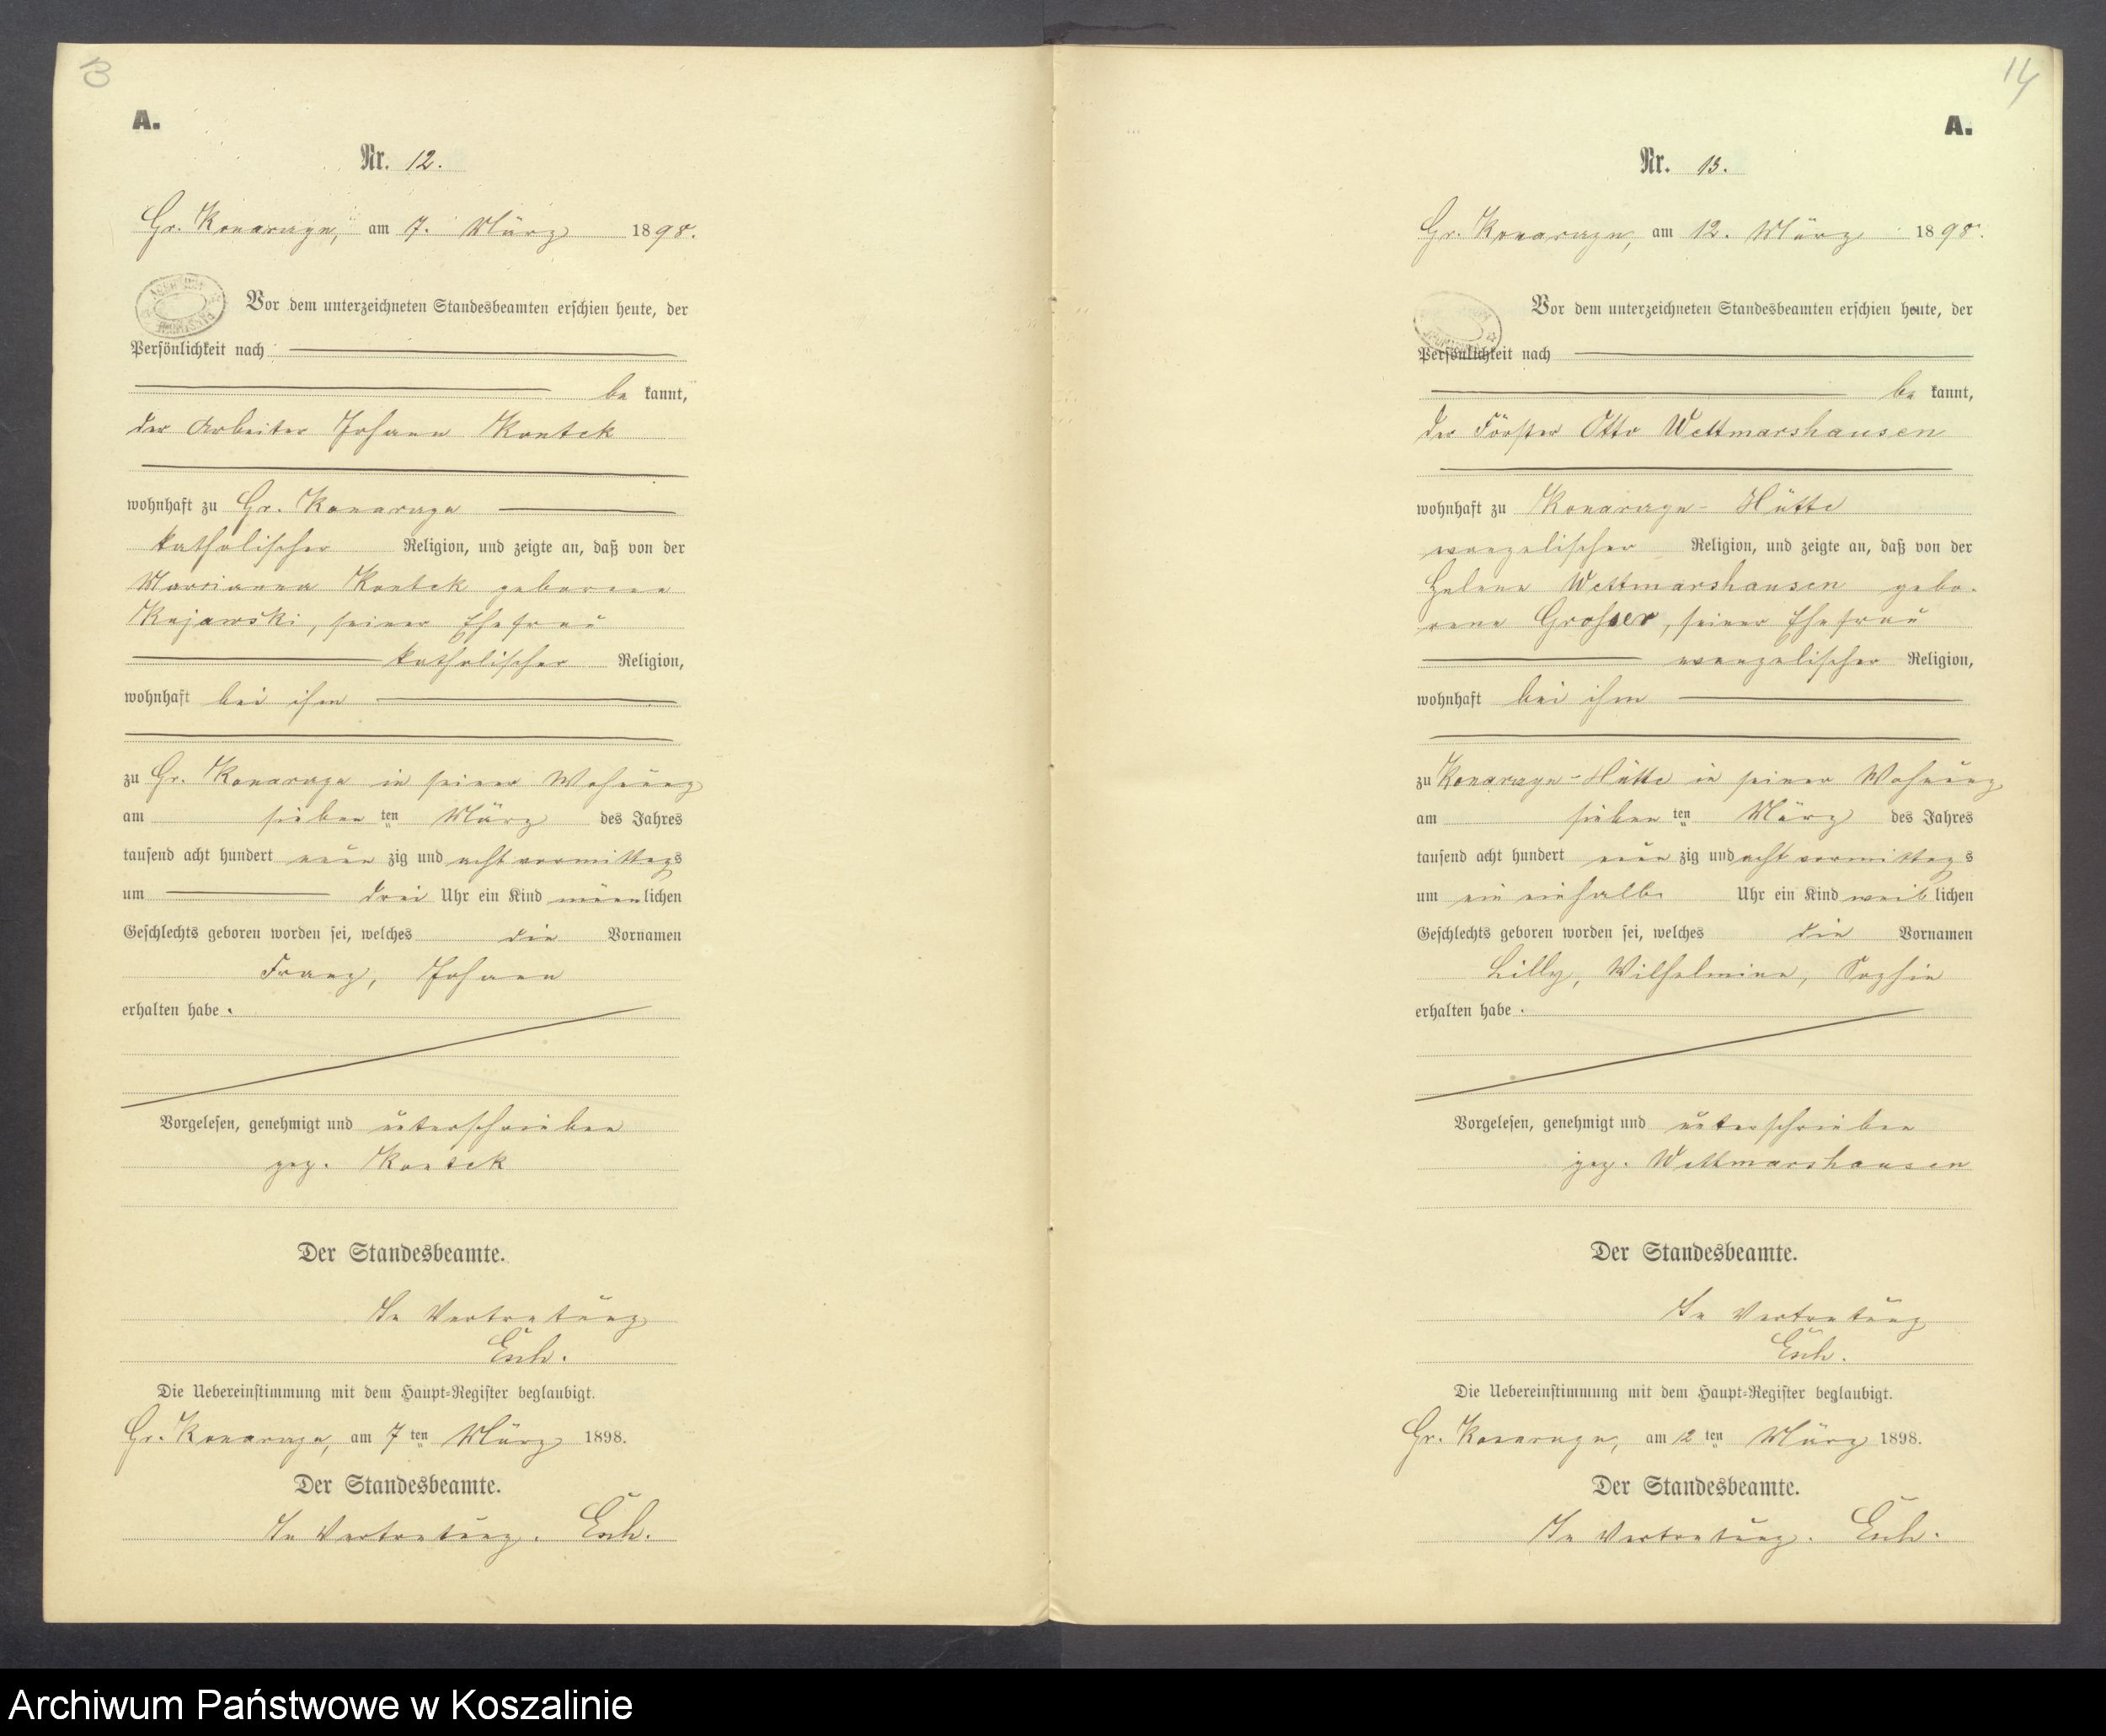 13
A.
Nr. 12.
Gr. Konarczyn, am 7. März 1898.
Vor dem unterzeichneten Standesbeamten erschien heute, der
Persönlichkeit nach
be kannt,
der Arbeiter Johann Kontek
wohnhaft zu Gr. Konarczyn
katholischer Religion, und zeigte an, daß von der
Marianna Kontek geborene
Kujawski, seiner Ehefrau
katholischer Religion,
wohnhaft bei ihm
zu Gr. Konarczyn in seiner Wohnung
am sieben ten März des Jahres
tausend acht hundert neun zig und acht vormittags
um drei Uhr ein Kind männlichen
Geschlechts geboren worden sei, welches die Vornamen
Franz, Johann
erhalten habe.
Vorgelesen, genehmigt und unterschrieben
gez. Kontek
Der Standesbeamte.
In Vertretung
Esch.
Die Uebereinstimmung mit dem Haupt-Register beglaubigt.
Gr. Konarczyn, am 7 ten März 1898.
Der Standesbeamte.
In Vertretung. Esch.
14
A.
Nr. 13.
Gr. Konarczyn, am 12. März 1898.
Vor dem unterzeichneten Standesbeamten erschien heute, der
Persönlichkeit nach
be kannt,
der Förster Otto Wettmarshausen
wohnhaft zu Konarczyn-Hütte
evangelischer Religion, und zeigte an, daß von der
Helene Wettmarshausen gebo-
rene Grosser, seiner Ehefrau
evangelischer Religion,
wohnhaft bei ihm
zu Konarczyn-Hütte in seiner Wohnung
am sieben ten März des Jahres
tausend acht hundert neun zig und acht vormittags
um ein einhalb Uhr ein Kind weiblichen
Geschlechts geboren worden sei, welches die Vornamen
Lilly, Wilhelmine, Sophie
erhalten habe.
Vorgelesen, genehmigt und unterschrieben
gez. Wettmarshausen
Der Standesbeamte.
In Vertretung
Esch.
Die Uebereinstimmung mit dem Haupt-Register beglaubigt.
Gr. Konarczyn, am 12 ten März 1898.
Der Standesbeamte.
In Vertretung. Esch.
Archiwum Państwowe w Koszalinie